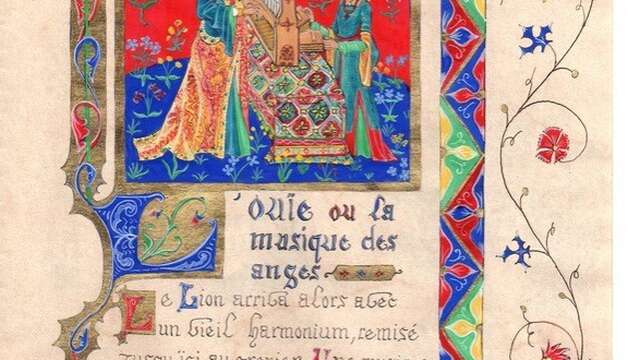 L'ouïe ou la
musique des
anges
Le Lion arriva alors avec
un vieil harmonium, remisé
jusqu'ici au grenier. Une